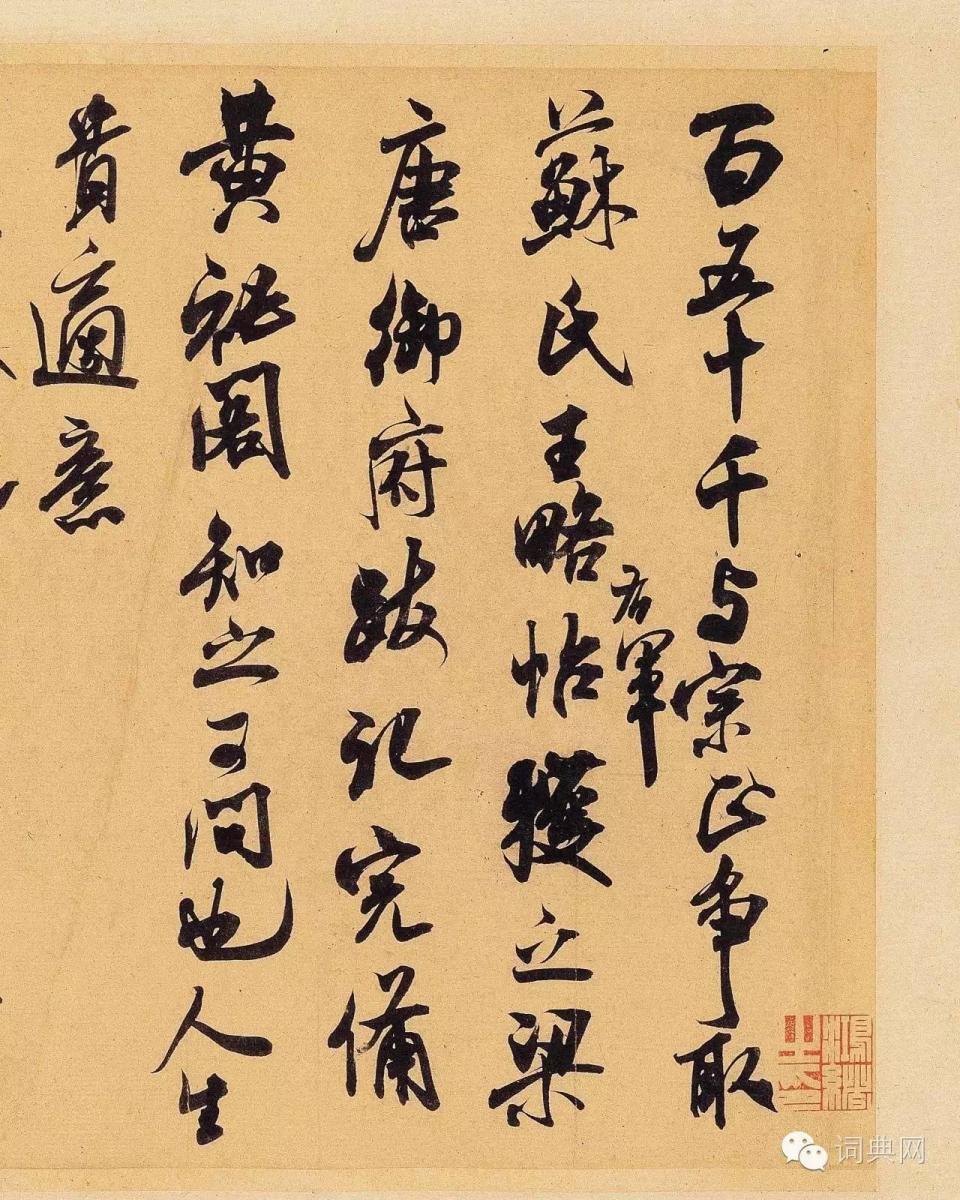 百五十千与宗正争取
蘇氏王略帖獲之梁
右軍
唐御府跋記完備
黄祕閣知之可問也人生
貴適意
词典网